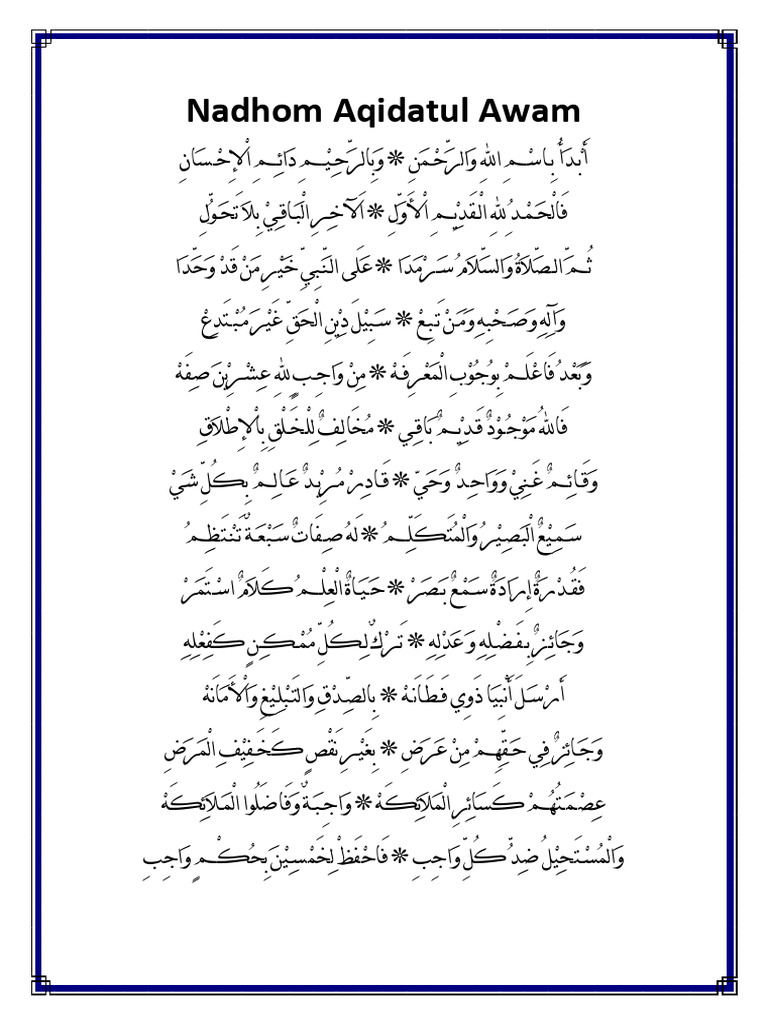 Nadhom Aqidatul Awam
أَبْدَأُ بِاسْمِ اللهِ وَالرَّحْمَنِ ❊ وَبِالرَّحِيْمِ دَائِمِ اْلإِحْسَانِ
فَالْحَمْدُ لِلهِ الْقَدِيْمِ اْلأَوَّلِ ❊ اَلآخِرِ الْبَاقِيْ بِلاَ تَحَوُّلِ
ثُمَّ الصَّلاَةُ وَالسَّلاَمُ سَرْمَدَا ❊ عَلَى النَّبِيِّ خَيْرِ مَنْ قَدْ وَحَّدَا
وَآلِهِ وَصَحْبِهِ وَمَنْ تَبِعْ ❊ سَبِيْلَ دِيْنِ الْحَقِّ غَيْرَ مُبْتَدِعْ
وَبَعْدُ فَاعْلَمْ بِوُجُوْبِ الْمَعْرِفَهْ ❊ مِنْ وَاجِبٍ لِلهِ عِشْرِيْنَ صِفَهْ
فَاللهُ مَوْجُوْدٌ قَدِيْمٌ بَاقِي ❊ مُخَالِفٌ لِلْخَلْقِ بِاْلإِطْلاَقِ
وَقَائِمٌ غَنِيْ وَوَاحِدٌ وَحَيّ ❊ قَادِرْ مُرِيْدٌ عَالِمٌ بِكُلِّ شَيْ
سَمِيْعٌ الْبَصِيْرُ وَالْمُتَكَلِّمُ ❊ لَهُ صِفَاتٌ سَبْعَةٌ تَنْتَظِمُ
فَقُدْرَةٌ إِرَادَةٌ سَمْعٌ بَصَرْ ❊ حَيَاةٌ الْعِلْمُ كَلاَمٌ اسْتَمَرْ
وَجَائِزٌ بِفَضْلِهِ وَعَدْلِهِ ❊ تَرْكٌ لِكُلِّ مُمْكِنٍ كَفِعْلِهِ
أَرْسَلَ أَنْبِيَا ذَوِي فَطَانَهْ ❊ بِالصِّدْقِ وَالتَبْلِيْغِ وَاْلأَمَانَهْ
وَجَائِزٌ فِي حَقِّهِمْ مِنْ عَرَضِ ❊ بِغَيْرِ نَقْصٍ كَخَفِيْفِ الْمَرَضِ
عِصْمَتُهُمْ كَسَائِرِ الْمَلاَئِكَهْ ❊ وَاجِبَةٌ وَفَاضَلُوا الْمَلاَئِكَهْ
وَالْمُسْتَحِيْلُ ضِدُّ كُلِّ وَاجِبِ ❊ فَاحْفَظْ لِخَمْسِيْنَ بِحُكْمٍ وَاجِبِ